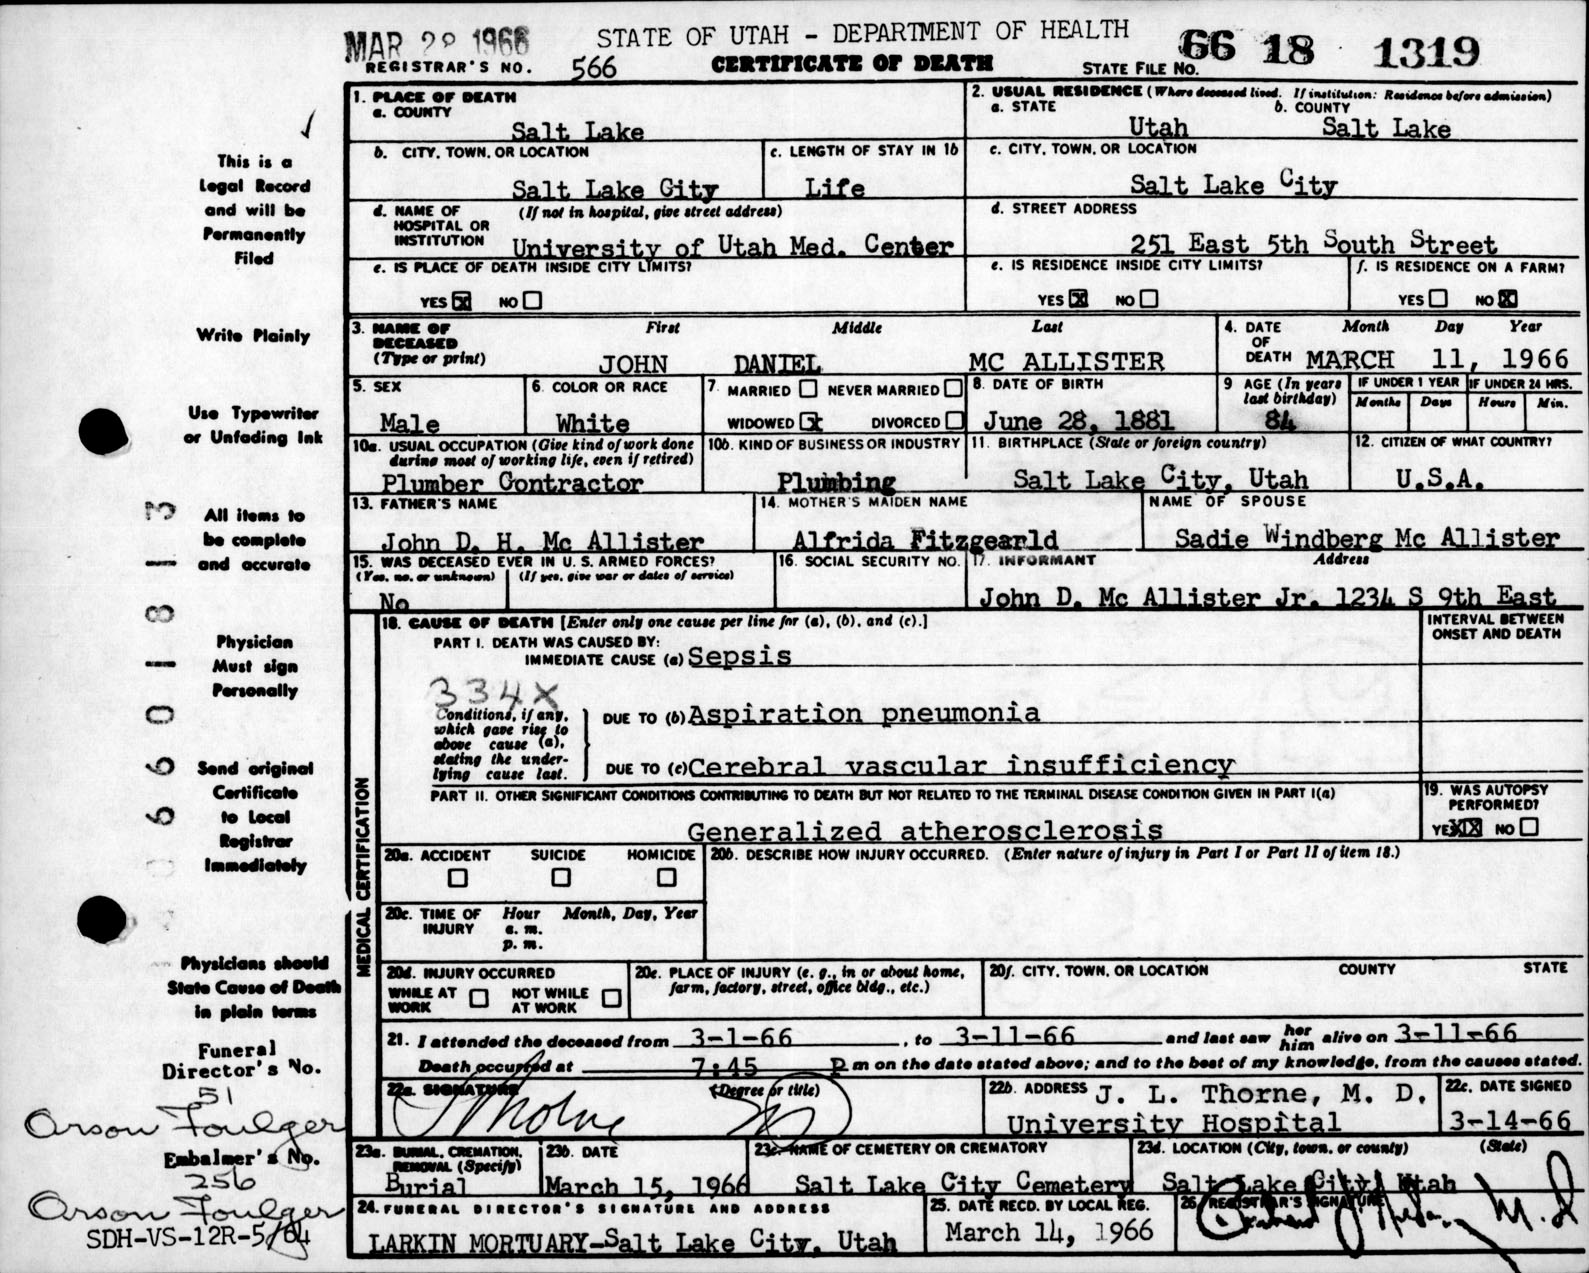 MAR 28 1966
STATE OF UTAH - DEPARTMENT OF HEALTH
66 18 1319
REGISTRAR'S NO. 566
CERTIFICATE OF DEATH
STATE FILE NO.
1. PLACE OF DEATH
a. COUNTY
Salt Lake
2. USUAL RESIDENCE (Where deceased lived. If institution: Residence before admission)
a. STATE b. COUNTY
Utah Salt Lake
b. CITY, TOWN, OR LOCATION
Salt Lake City
c. LENGTH OF STAY IN 1b
Life
c. CITY, TOWN, OR LOCATION
Salt Lake City
d. NAME OF HOSPITAL OR INSTITUTION
(If not in hospital, give street address)
University of Utah Med. Center
d. STREET ADDRESS
251 East 5th South Street
e. IS PLACE OF DEATH INSIDE CITY LIMITS?
YES X NO
e. IS RESIDENCE INSIDE CITY LIMITS?
YES X NO
f. IS RESIDENCE ON A FARM?
YES NO X
3. NAME OF DECEASED
(Type or print)
First Middle Last
JOHN DANIEL MC ALLISTER
4. DATE OF DEATH
Month Day Year
MARCH 11, 1966
5. SEX
Male
6. COLOR OR RACE
White
7. MARRIED NEVER MARRIED
WIDOWED X DIVORCED
8. DATE OF BIRTH
June 28, 1881
9 AGE (In years last birthday)
84
IF UNDER 1 YEAR
Months Days
IF UNDER 24 HRS.
Hours Min.
10a. USUAL OCCUPATION (Give kind of work done
during most of working life, even if retired)
Plumber Contractor
10b. KIND OF BUSINESS OR INDUSTRY
Plumbing
11. BIRTHPLACE (State or foreign country)
Salt Lake City, Utah
12. CITIZEN OF WHAT COUNTRY?
U.S.A.
13. FATHER'S NAME
John D. H. Mc Allister
14. MOTHER'S MAIDEN NAME
Alfrida Fitzgearld
NAME OF SPOUSE
Sadie Windberg Mc Allister
15. WAS DECEASED EVER IN U. S. ARMED FORCES?
(Yes, no, or unknown) (If yes, give war or dates of service)
No
16. SOCIAL SECURITY NO.
17. INFORMANT Address
John D. Mc Allister Jr. 1234 S 9th East
MEDICAL CERTIFICATION
18. CAUSE OF DEATH [Enter only one cause per line for (a), (b), and (c).]
INTERVAL BETWEEN
ONSET AND DEATH
PART I. DEATH WAS CAUSED BY:
IMMEDIATE CAUSE (a) Sepsis
334X
Conditions, if any,
which gave rise to
above cause (a),
stating the under-
lying cause last.
DUE TO (b) Aspiration pneumonia
DUE TO (c) Cerebral vascular insufficiency
PART II. OTHER SIGNIFICANT CONDITIONS CONTRIBUTING TO DEATH BUT NOT RELATED TO THE TERMINAL DISEASE CONDITION GIVEN IN PART I(a)
Generalized atherosclerosis
19. WAS AUTOPSY
PERFORMED?
YES XX NO
20a. ACCIDENT SUICIDE HOMICIDE
20b. DESCRIBE HOW INJURY OCCURRED. (Enter nature of injury in Part I or Part II of item 18.)
20c. TIME OF INJURY
Hour Month, Day, Year
a. m.
p. m.
20d. INJURY OCCURRED
WHILE AT WORK NOT WHILE AT WORK
20e. PLACE OF INJURY (e. g., in or about home,
farm, factory, street, office bldg., etc.)
20f. CITY, TOWN, OR LOCATION COUNTY STATE
21. I attended the deceased from 3-1-66, to 3-11-66 and last saw her him alive on 3-11-66
Death occurred at 7:45 P m on the date stated above; and to the best of my knowledge, from the causes stated.
22a. SIGNATURE (Degree or title)
Thorne
22b. ADDRESS J. L. Thorne, M. D.
University Hospital
22c. DATE SIGNED
3-14-66
23a. BURIAL, CREMATION,
REMOVAL (Specify)
Burial
23b. DATE
March 15, 1966
23c. NAME OF CEMETERY OR CREMATORY
Salt Lake City Cemetery
23d. LOCATION (City, town, or county) (State)
Salt Lake City, Utah
24. FUNERAL DIRECTOR'S SIGNATURE AND ADDRESS
LARKIN MORTUARY-Salt Lake City, Utah
25. DATE RECD. BY LOCAL REG.
March 14, 1966
26. REGISTRAR'S SIGNATURE
M.D
This is a
Legal Record
and will be
Permanently
Filed
Write Plainly
Use Typewriter
or Unfading Ink
All items to
be complete
and accurate
Physician
Must sign
Personally
Send original
Certificate
to Local
Registrar
Immediately
Physicians should
State Cause of Death
in plain terms
Funeral
Director's No.
51
Orson Foulger
Embalmer's No.
256
Orson Foulger
SDH-VS-12R-5/64